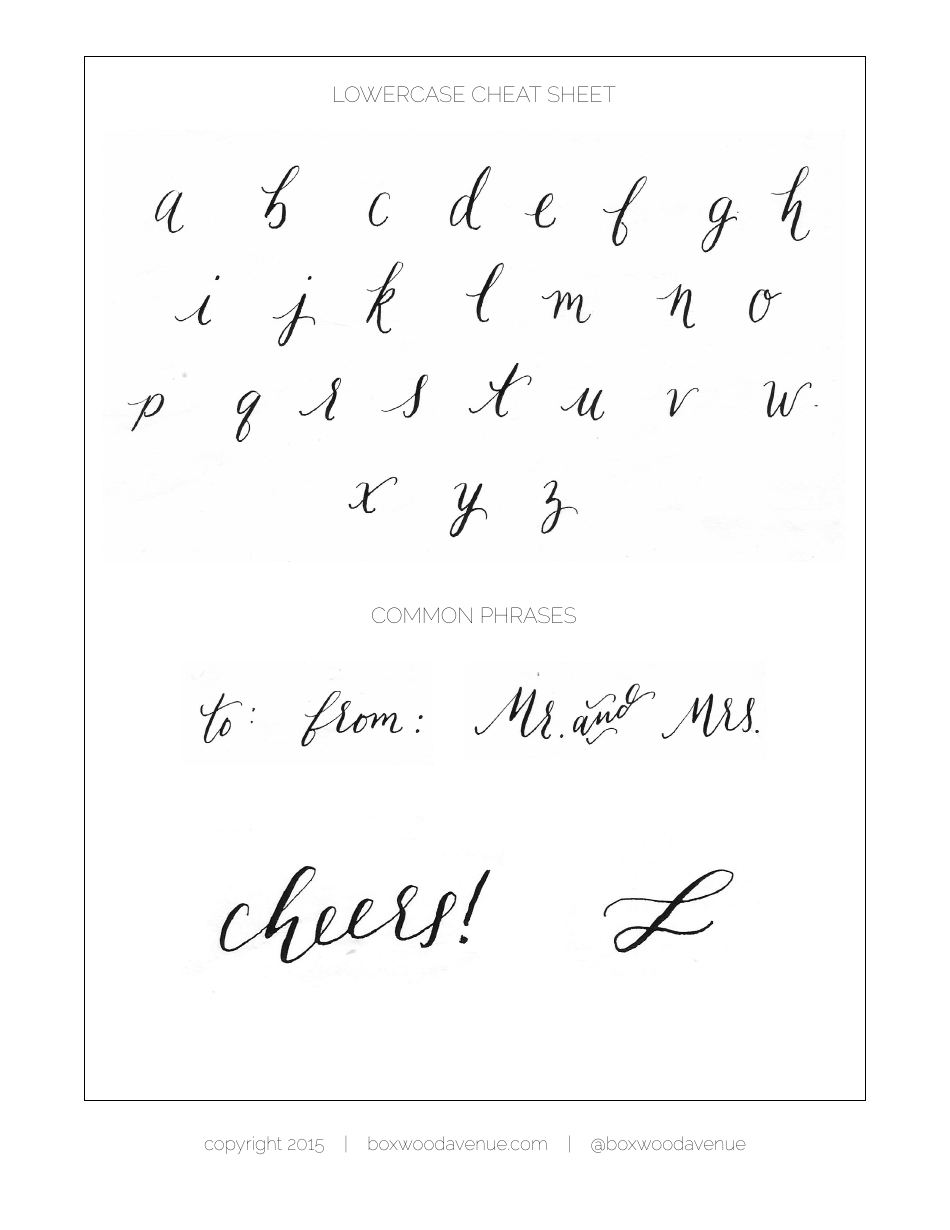 LOWERCASE CHEAT SHEET
a b c d e f g h
i j k l m n o
p q r s t u v w
x y z
COMMON PHRASES
to: from: Mr. and Mrs.
cheers! L
copyright 2015 | boxwoodavenue.com | @boxwoodavenue